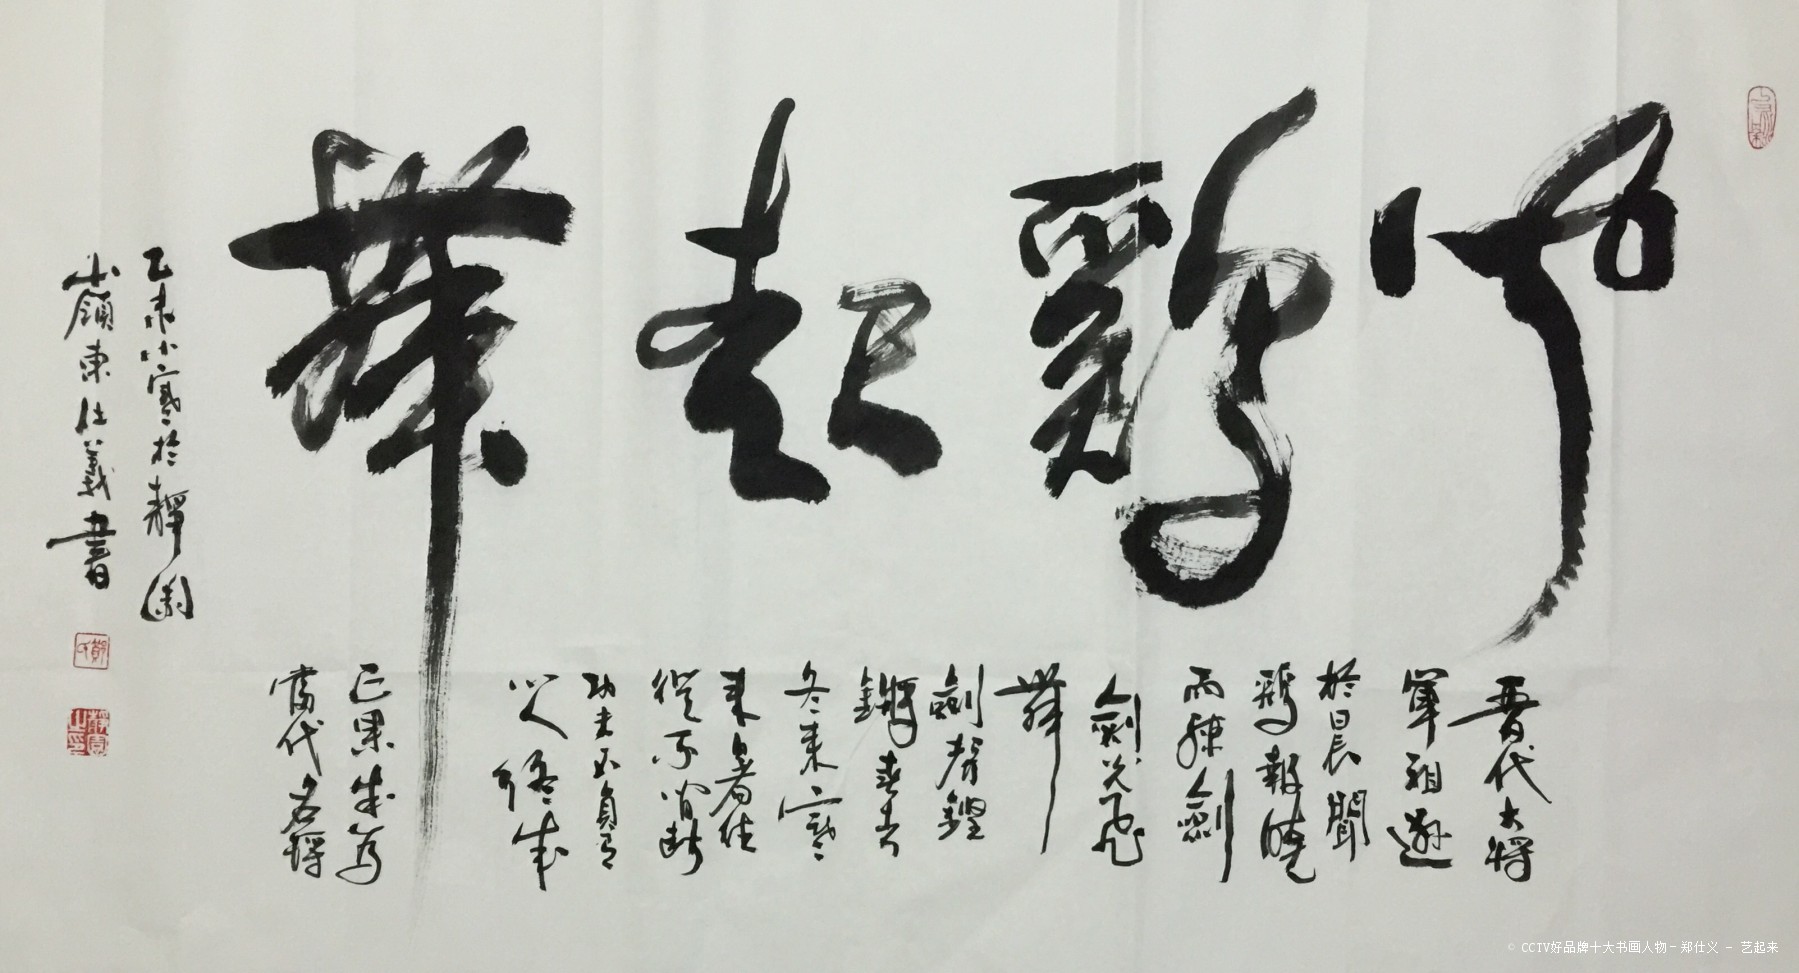 闻鷄起舞
晋代大将
軍祖逖
於晨聞
鷄報曉
而練劍
劍光飛
舞
劍聲鏗
鏘春去
冬来寒
来暑往
從不间断
功夫不負有
心人終成
正果成为
當代名将
乙未小寒於靜園
嶺東仕義書
鄭氏
© CCTV好品牌十大书画人物－郑仕义 － 艺起来